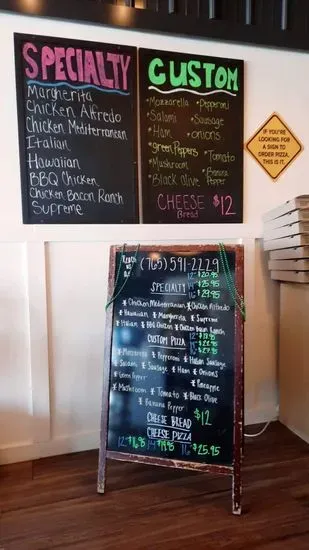 SPECIALTY
Margherita
Chicken Alfredo
Chicken Mediterranean
Italian
Hawaiian
BBQ Chicken
Chicken Bacon Ranch
Supreme
CUSTOM
• Mozzarella • Pepperoni
• Salami • Sausage
• Ham • onions
• green Peppers
• Mushroom • Tomato
• Black olive • Banana Pepper
CHEESE Bread $12
IF YOU'RE
LOOKING FOR
A SIGN TO
ORDER PIZZA,
THIS IS IT.
(765) 591-2229
12" $20.95
SPECIALTY 14" $25.95
16" $29.95
* Chicken Mediterranean * Chicken Alfredo
* Hawaiian * Margherita * Supreme
* Italian * BBQ Chicken * Chicken Bacon Ranch
CUSTOM PIZZA
* Mozzarella * Pepperoni * Italian Sausage
* Salami * Sausage * Ham * Onions
* Green Pepper * Pineapple
* Mushroom * Tomato * Black Olive
* Banana Pepper
CHEESE BREAD $12
CHEESE PIZZA
12" $16.95 14" $19.95 16" $25.95